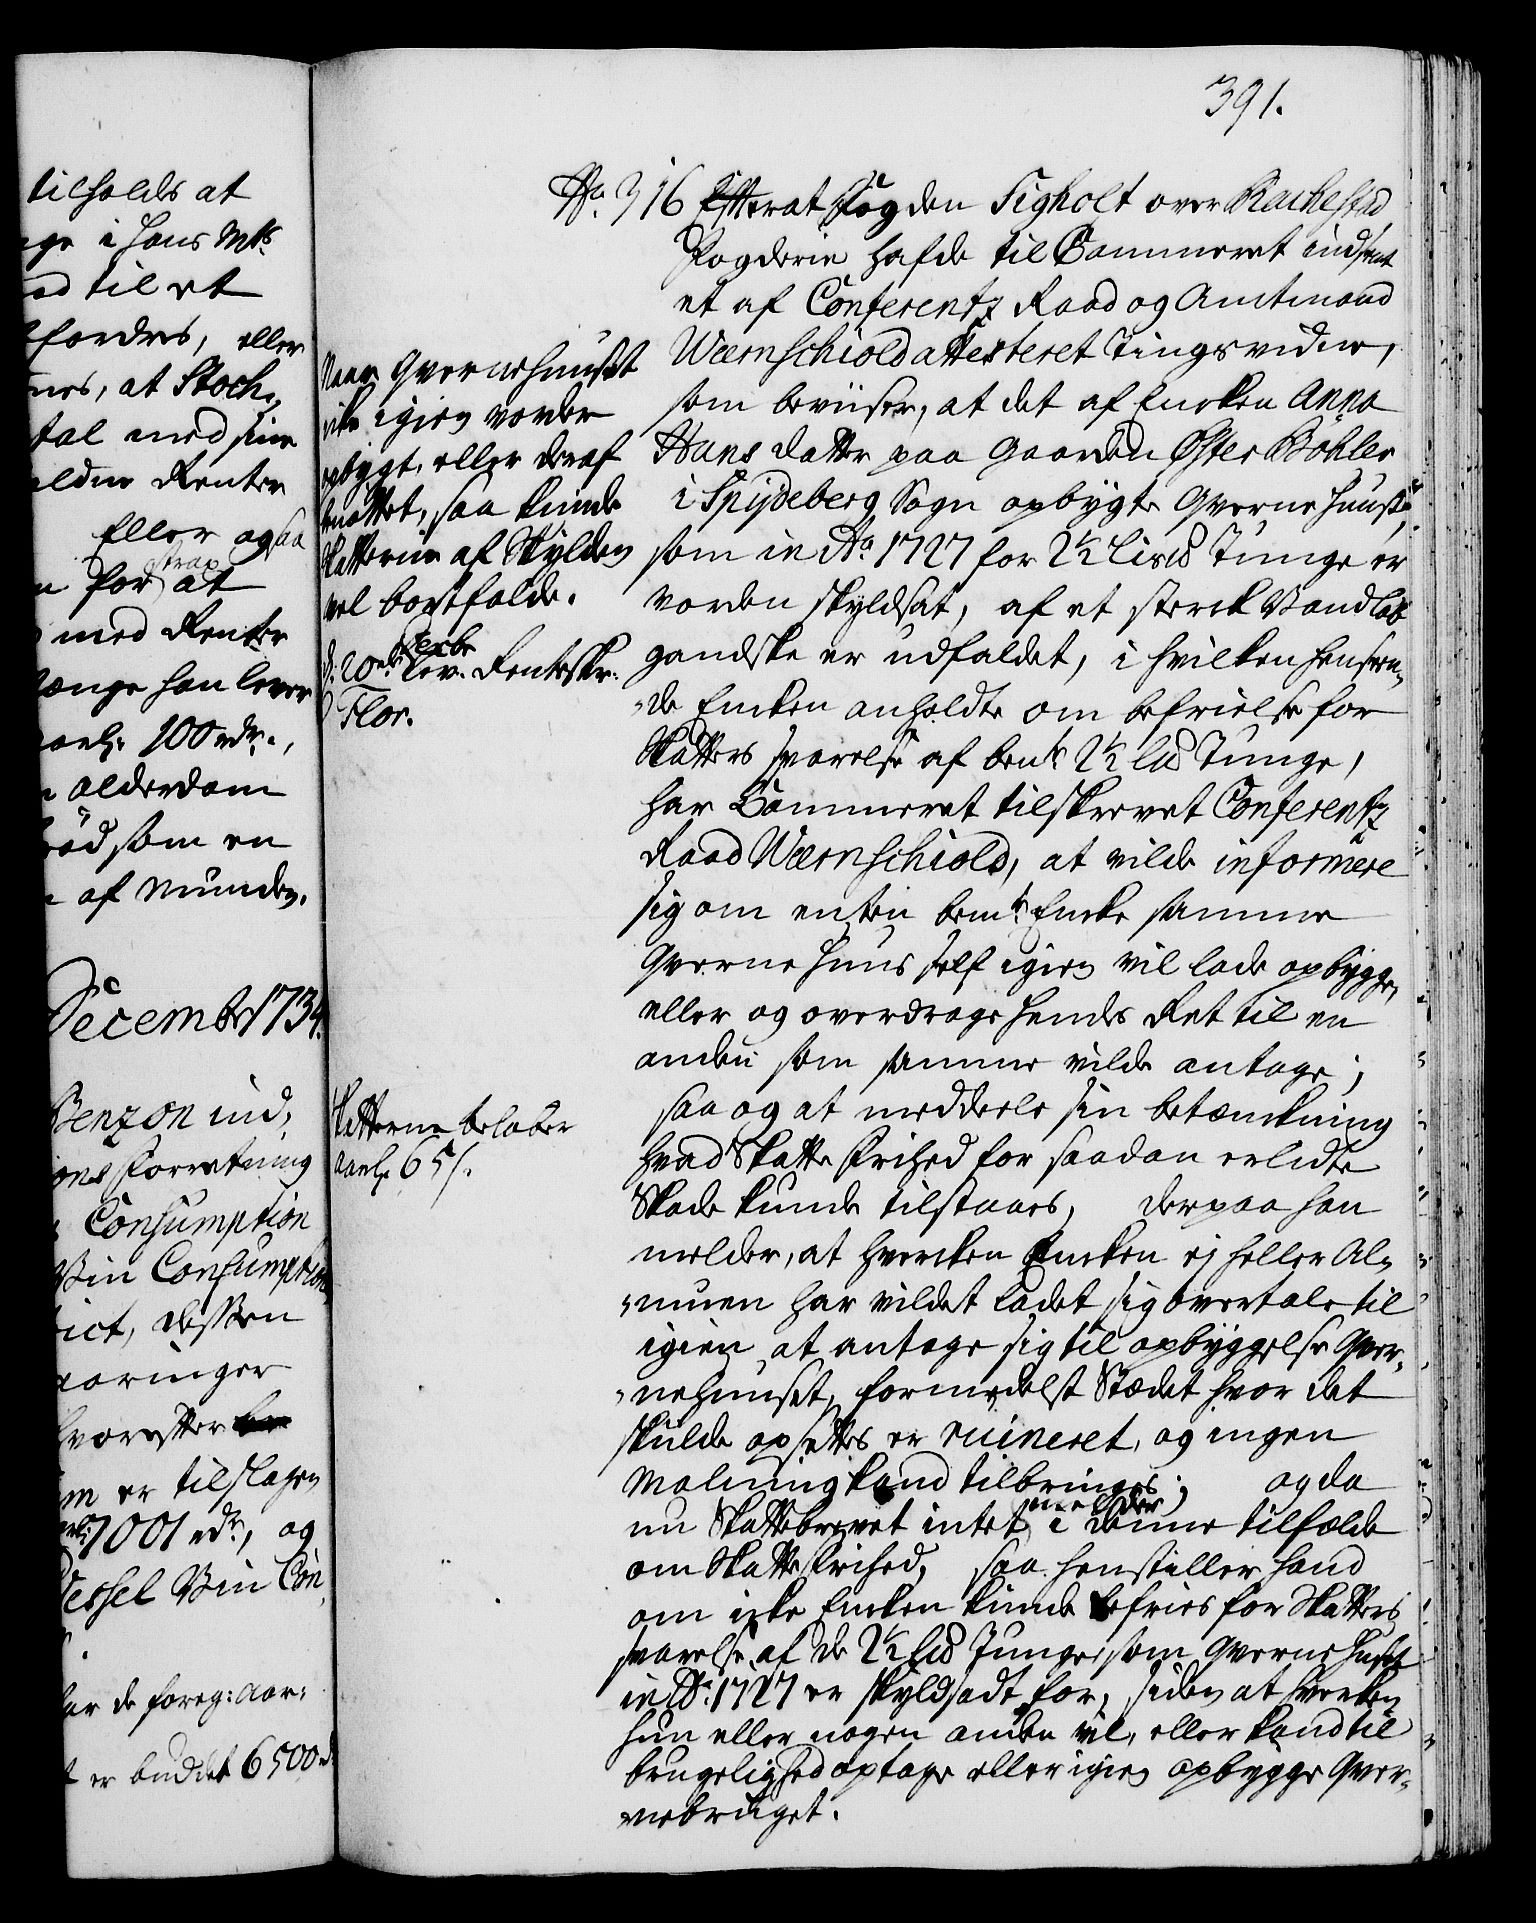 391.
tilholds at
age i Hans Mts
ed til et
fordres, eller
nes, at Stock¬
tal med sine
eldne Renter
Eller ogsaa
strax
n for at
med Renter
længe han lever
aarl: 100 rdr.,
alderdom
brød som en
af Munden.
December 1734.
Benzon ind¬
ons Forretning
Consumption
Vin Consumption
ict, dessen
aaringer
hvorefter
m er tilslagen
1001 rdr, og
Wessel Viin Con¬
for de foreg: Aar:
t er buddet 6500 rd
No. 316 Efterat Fogden Sigholt over Rackestad
Fogderie hafde til Cammeret indsent
et af Conferentz Raad og Amtmand
Wærnschiold attesteret Tingsvidne,
som beviiser, at det af Encken Anna
Hans datter paa Gaarden Øster Bøhler
i Spydeberg Sogn opbygte Qvernehuus,
som in Ao 1727 for 2½ Lispd Tunge er
vorden skyldsat, af et sterck Vandløb
gandske er udfaldet, i hvilken henseen¬
de Encken anholdte om befrielse for
Skatters svarelse af bemte 2½ Lpd Tunge,
har Cammeret tilskrevet Conferentz
Raad Wærnschiold, at vilde informere
sig om enten bemte Encke samme
Qvernehuus self igien vil lade opbygge,
eller og overdrage hendes Ret til en
anden som samme vilde antage;
saa og at meddeele sin betænckning
hvad Skatte Frihed for saadan erlidte
Skade kunde tilstaaes, derpaa han
melder, at hvercken Encken ej heller Al¬
muen har vildet ladet sig overtale til
igien at antage sig til opbyggelse Qver¬
nehuuset, formedelst Stædet hvor det
skulde opsættes er ruineret, og ingen
Malning kand tilbringes; og da
melder
nu Skattebrevet intet i denne tilfælde
om Skatte Frihed, saa henstiller hand
om icke Encken kunde befries for Skatters
svarelse af de 2½ Lpd Tunge, som Qvernehuset
in Ao. 1727 er skyldsadt for, siden at hverken
hun eller nogen anden vil, eller kand til
brugelighed optage eller igien opbygge Qver¬
nebruget.
Naar Qvernehuuset
icke igien vorder
opbygt, eller deraf
nøttet, saa kunde
Skatterne af Skylden
vel bortfalde.
d: 20de Xbr
Lev. Renteskr.
Flor.
Skatterne beløber
aarl: 65 s.